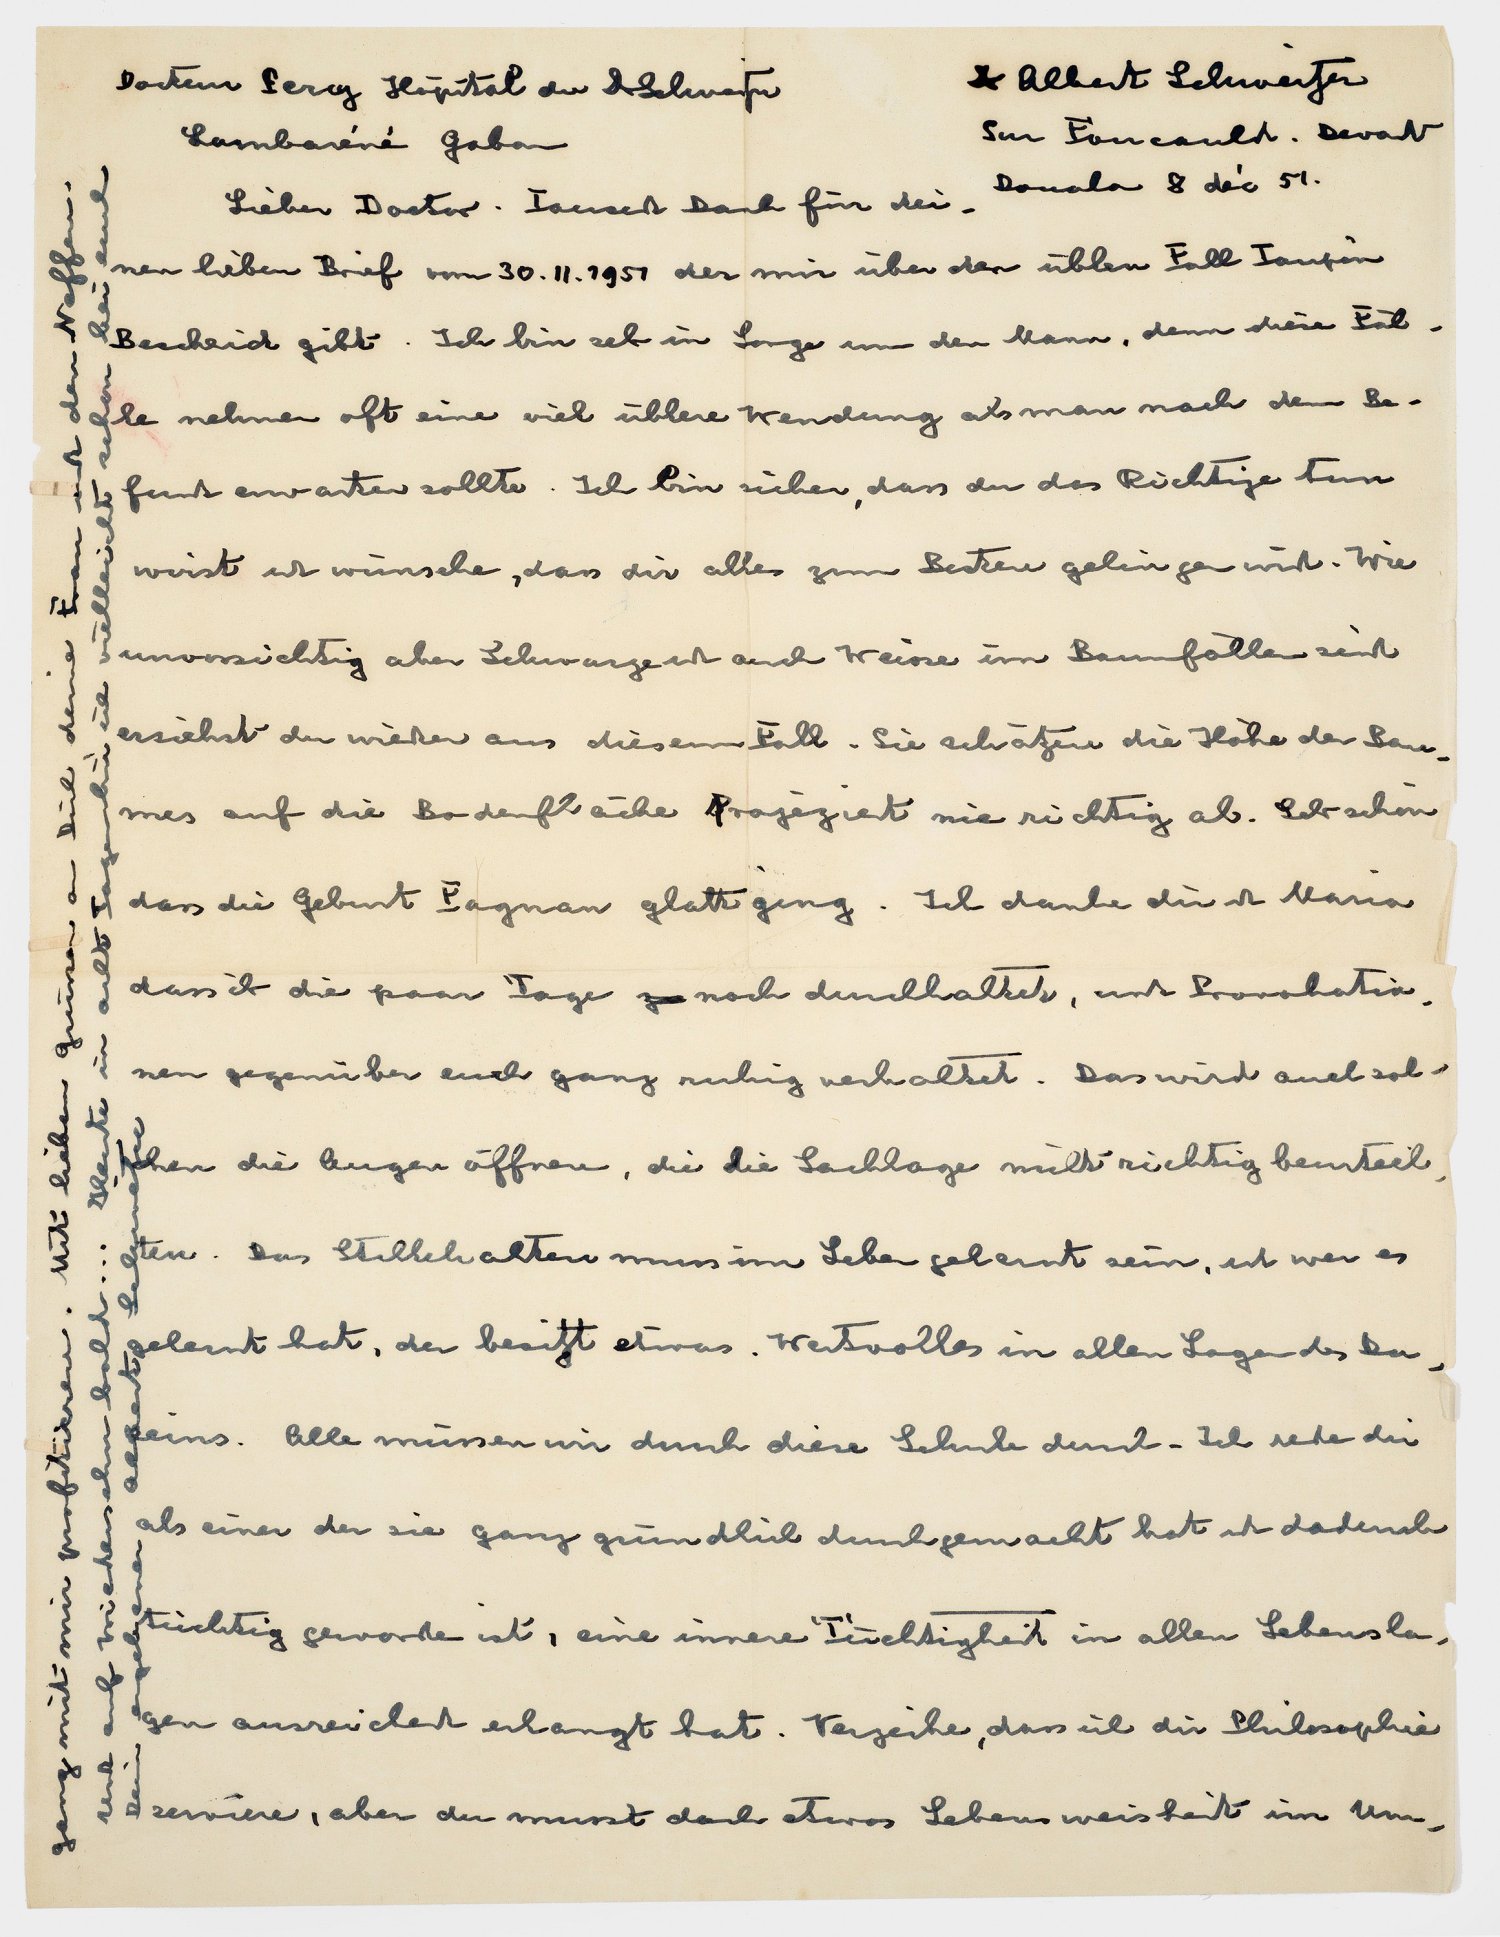 Docteur Percy Hôpital du Dr Schweitzer
Lambaréné Gabon
Dr Albert Schweitzer
Sur Foucauld. Devant
Douala 8 déc 51.
Lieber Doctor. Tausend Dank für dei-
nen lieben Brief vom 30.11.1951 der mir über den üblen Fall Taupin
Bescheid gibt. Ich bin sehr in Sorge um den Mann, denn diese Fäl-
le nehmen oft eine viel üblere Wendung als man nach dem Be-
fund erwarten sollte. Ich bin sicher, dass du das Richtige tun
wirst und wünsche, dass dir alles zum Besten gelingen wird. Wie
unvorsichtig aber Schwarze und auch Weisse im Baumfällen sind
ersiehst du wieder aus diesem Fall. Sie schätzen die Höhe der Bau-
mes auf die Bodenfläche Projeziert nie richtig ab. Sehr schön
dass die Geburt Fagnan glatt ging. Ich danke dir und Maria
dass ihr die paar Tage noch durchhaltet, und Provokatio-
nen gegenüber euch ganz ruhig verhaltet. Das wird auch sol-
chen die Augen öffnen, die die Sachlage nicht richtig beurteil-
ten. Das Stillehalten muss im Leben gelernt sein, und wer es
gelernt hat, der besitzt etwas. Wertvolles in allen Lagen des Da-
seins. Alle müssen wir durch diese Schule durch - Ich rede dir
als einer der sie ganz gründlich durchgemacht hat und dadurch
tüchtig geworden ist, eine innere Tüchtigkeit in allen Lebensla-
gen ausreichend erlangt hat. Verzeihe, dass ich dir Philosophie
serviere, aber du musst doch etwas Lebensweisheit im Um-
gang mit mir profitieren. Mit lieben Grüssen an Dich deine Frau und den Neffen.
und auf wiedersehn bald... Heute in acht Tagen bin ich vielleicht schon bei euch
Dein ergebener Albert Schweitzer